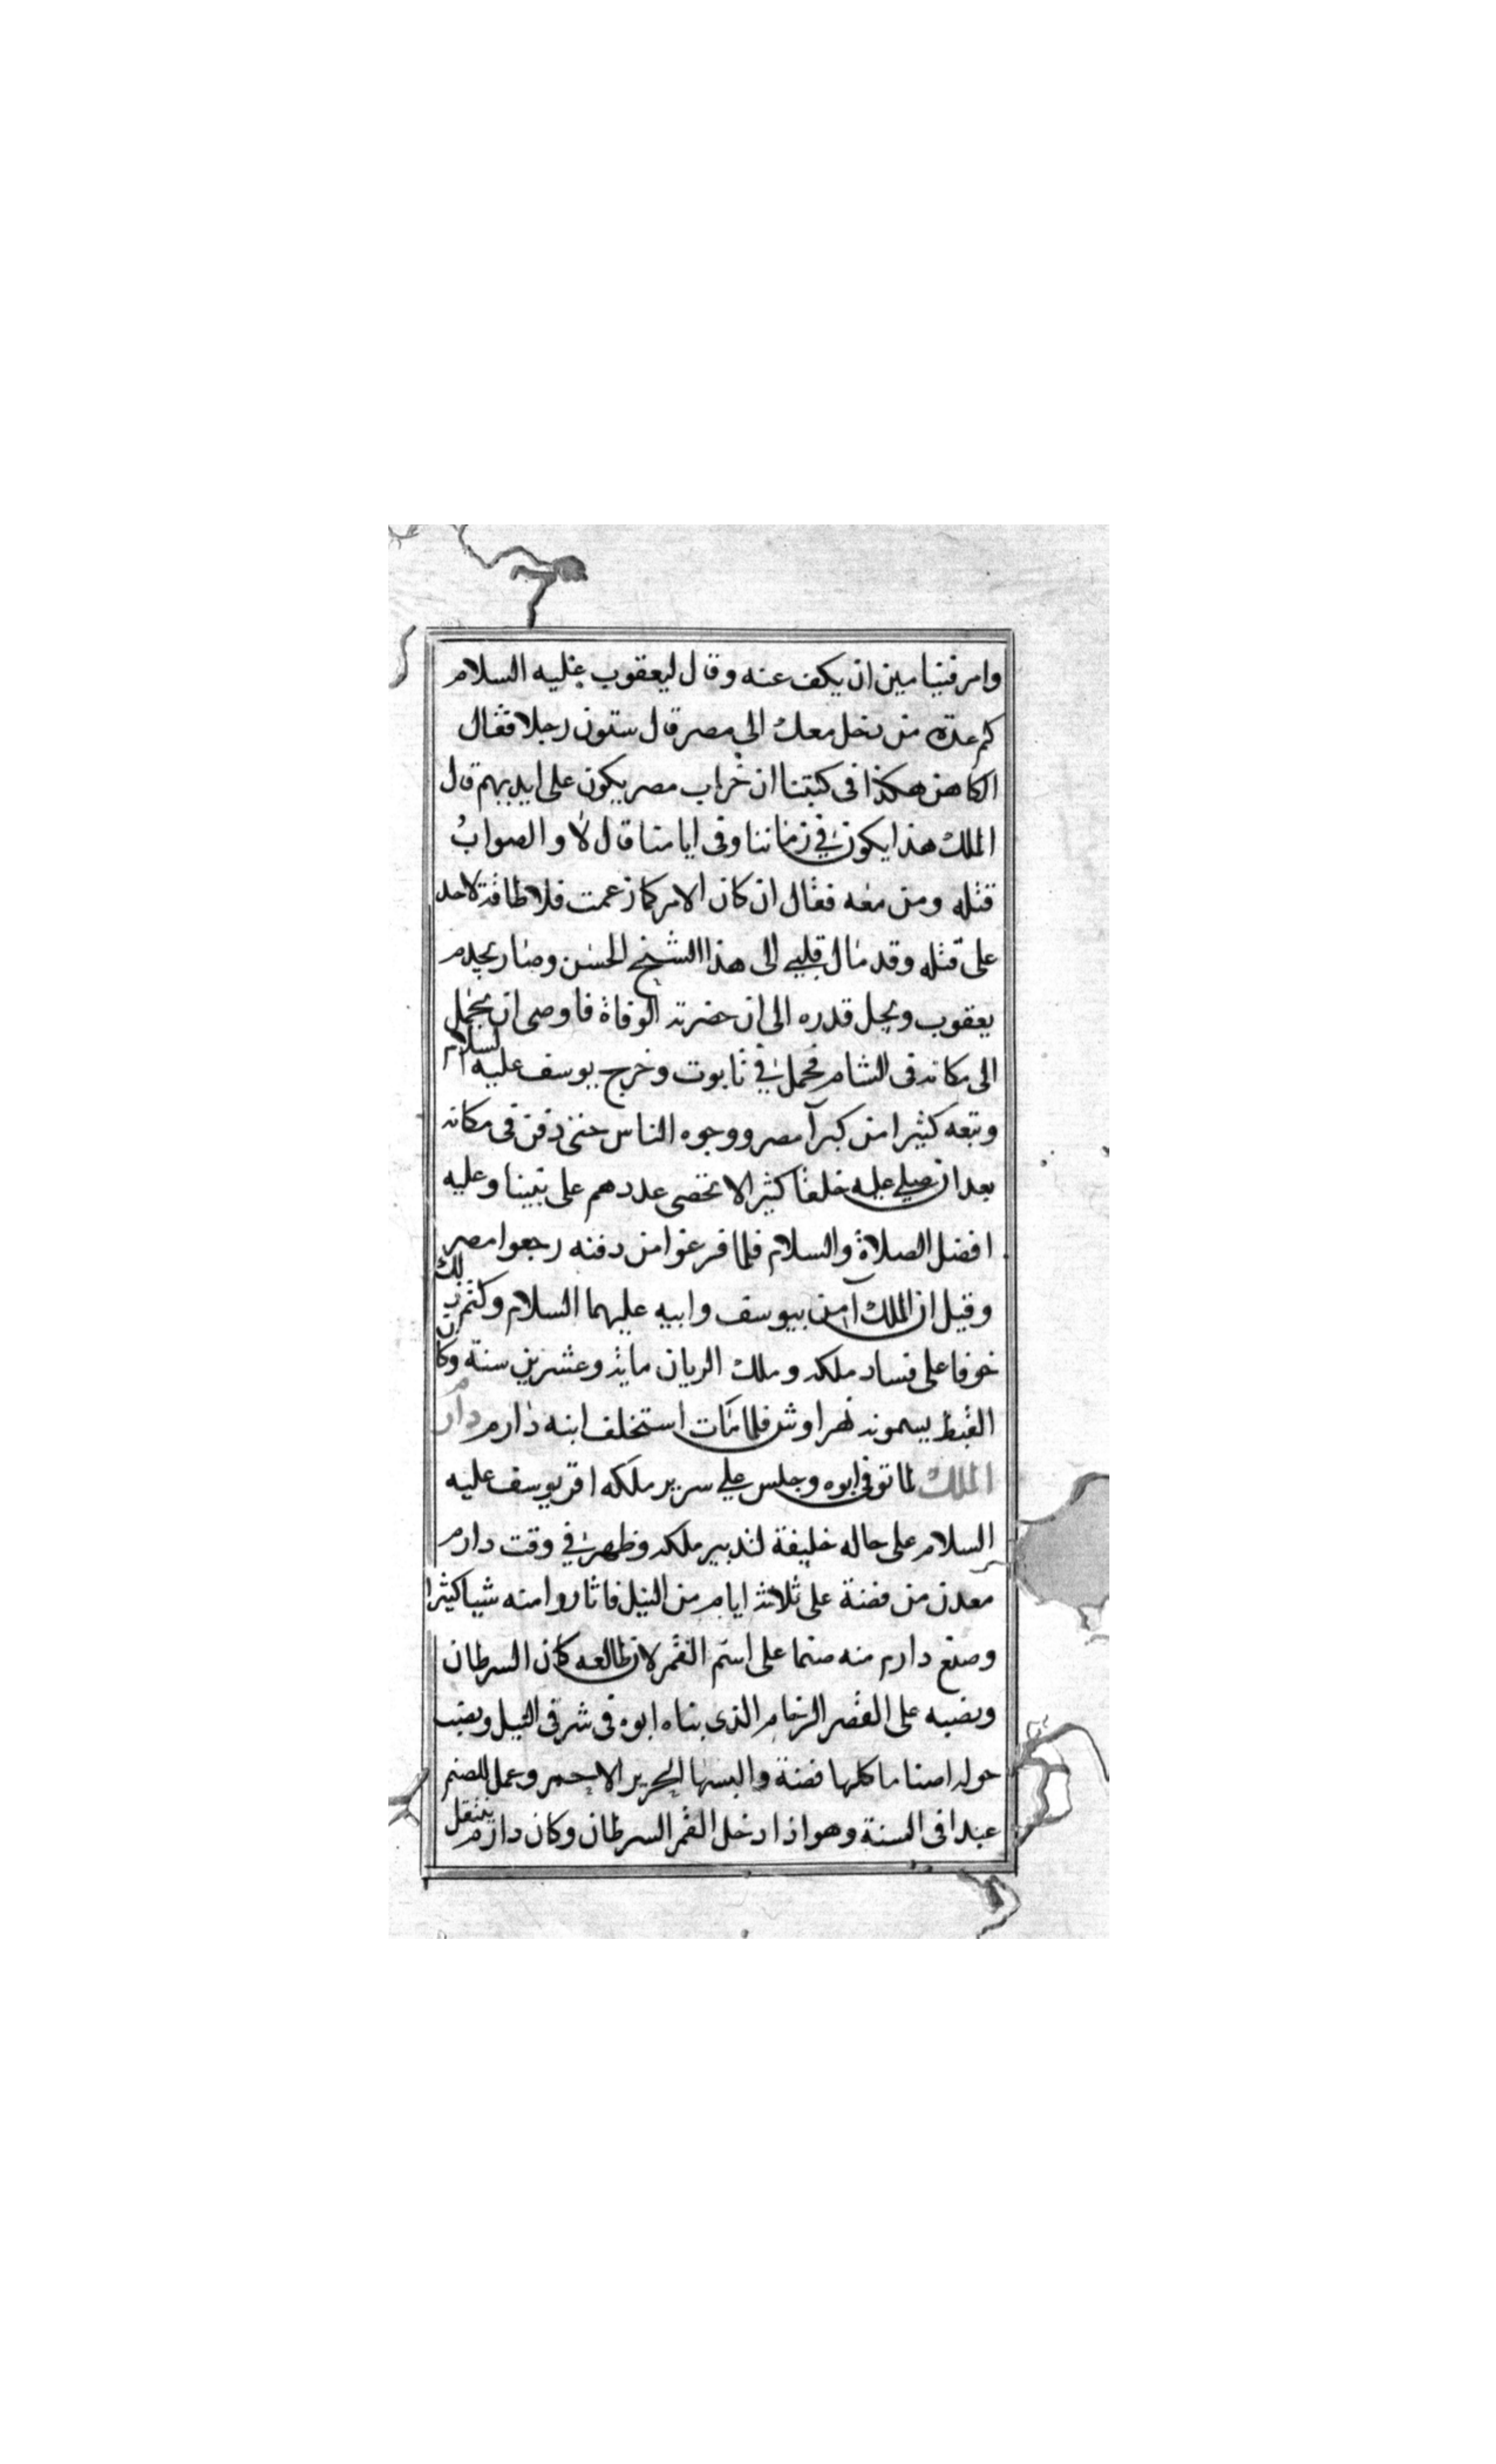 وامر فنيامين ان يكف عنه وقال ليعقوب عليه السلام
كم عدة من دخل معك الى مصر قال ستون رجلا فقال
الكاهن هكذا فى كتبنا ان خراب مصر يكون على ايديهم قال
الملك هذا يكون في زماننا وفى ايامنا قال لا والصواب
قتله ومن معه فقال ان كان الامر كما زعمت فلا طاقة لاحد
على قتله وقد مال قلبي الى هذا الشيخ الحسن وصار يخدم
يعقوب ويجل قدره الى ان حضرته الوفاة فاوصى ان يحمل
الى مكانه فى الشام فحمل في تابوت وخرج يوسف عليه السلام
وتبعه كثيرا من كبرآ مصر ووجوه الناس حتى دفن فى مكانه
بعد ان صلي عليه خلقا كثيرا لا تحصى عددهم على نبينا وعليه
افضل الصلاة والسلام فلما فرغوا من دفنه رجعوا مصر
وقيل ان الملك آمن بيوسف وابيه عليهما السلام وكتم ذلك
خوفا على فساد ملكه وملك الريان ماية وعشرين سنة وكان
القبط يسمونه نهراوش فلما مات استخلف ابنه دارم دارم
الملك لما توفى ابوه وجلس علي سرير ملكه اقر يوسف عليه
السلام على حاله خليفة لتدبير ملكه وظهر في وقت دارم
معدن من فضة على ثلاثة ايام من النيل فاثاروا منه شيا كثيرا
وصنع دارم منه صنما على اسم القمر لان طالعه كان السرطان
ونصبه على القصر الرخام الذى بناه ابوه فى شرقى النيل ونصب
حوله اصناما كلها فضة والبسها الحرير الاحمر وعمل للصنم
عيدا فى السنة وهو اذا دخل القمر السرطان وكان دارم يتنقل